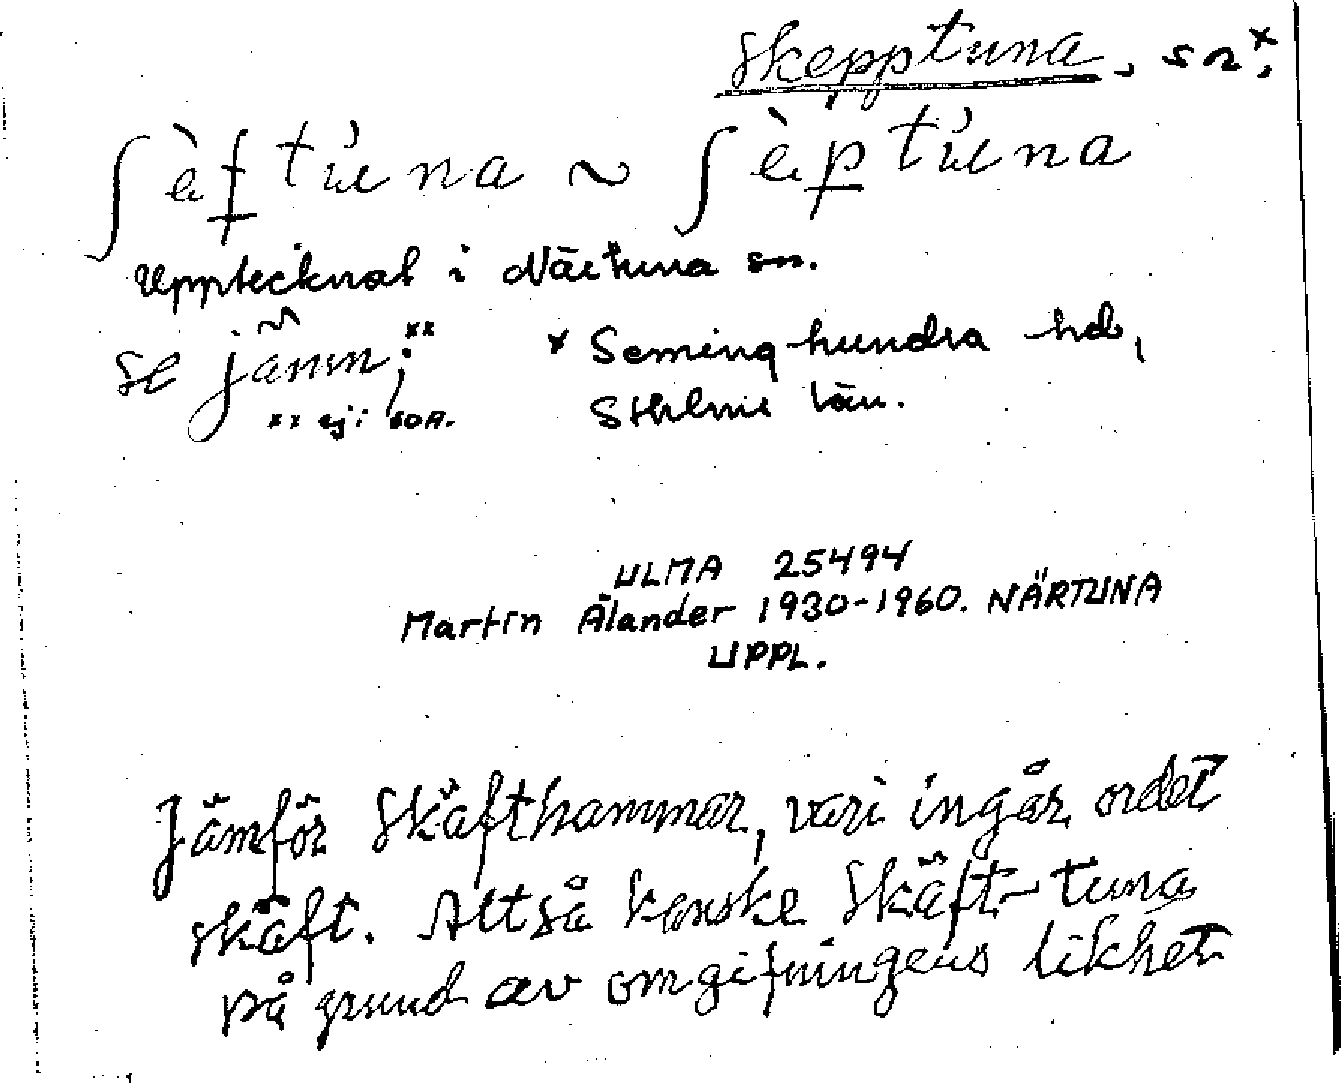 Skepptuna, sn×;
ʃèftúna ~ ʃèptúna
Upptecknat i Närtuna sn.
se jämn;××
× Seminghundra hd,
×× ej i SOA.
Sthlms län.
ULMA 25494
Martin Ålander 1930-1960. NÄRTUNA
UPPL.
Jämför Skäfthammar, vari ingår ordet
skäft. Alltså kanske Skäft-tuna
på grund av omgifningens likhet